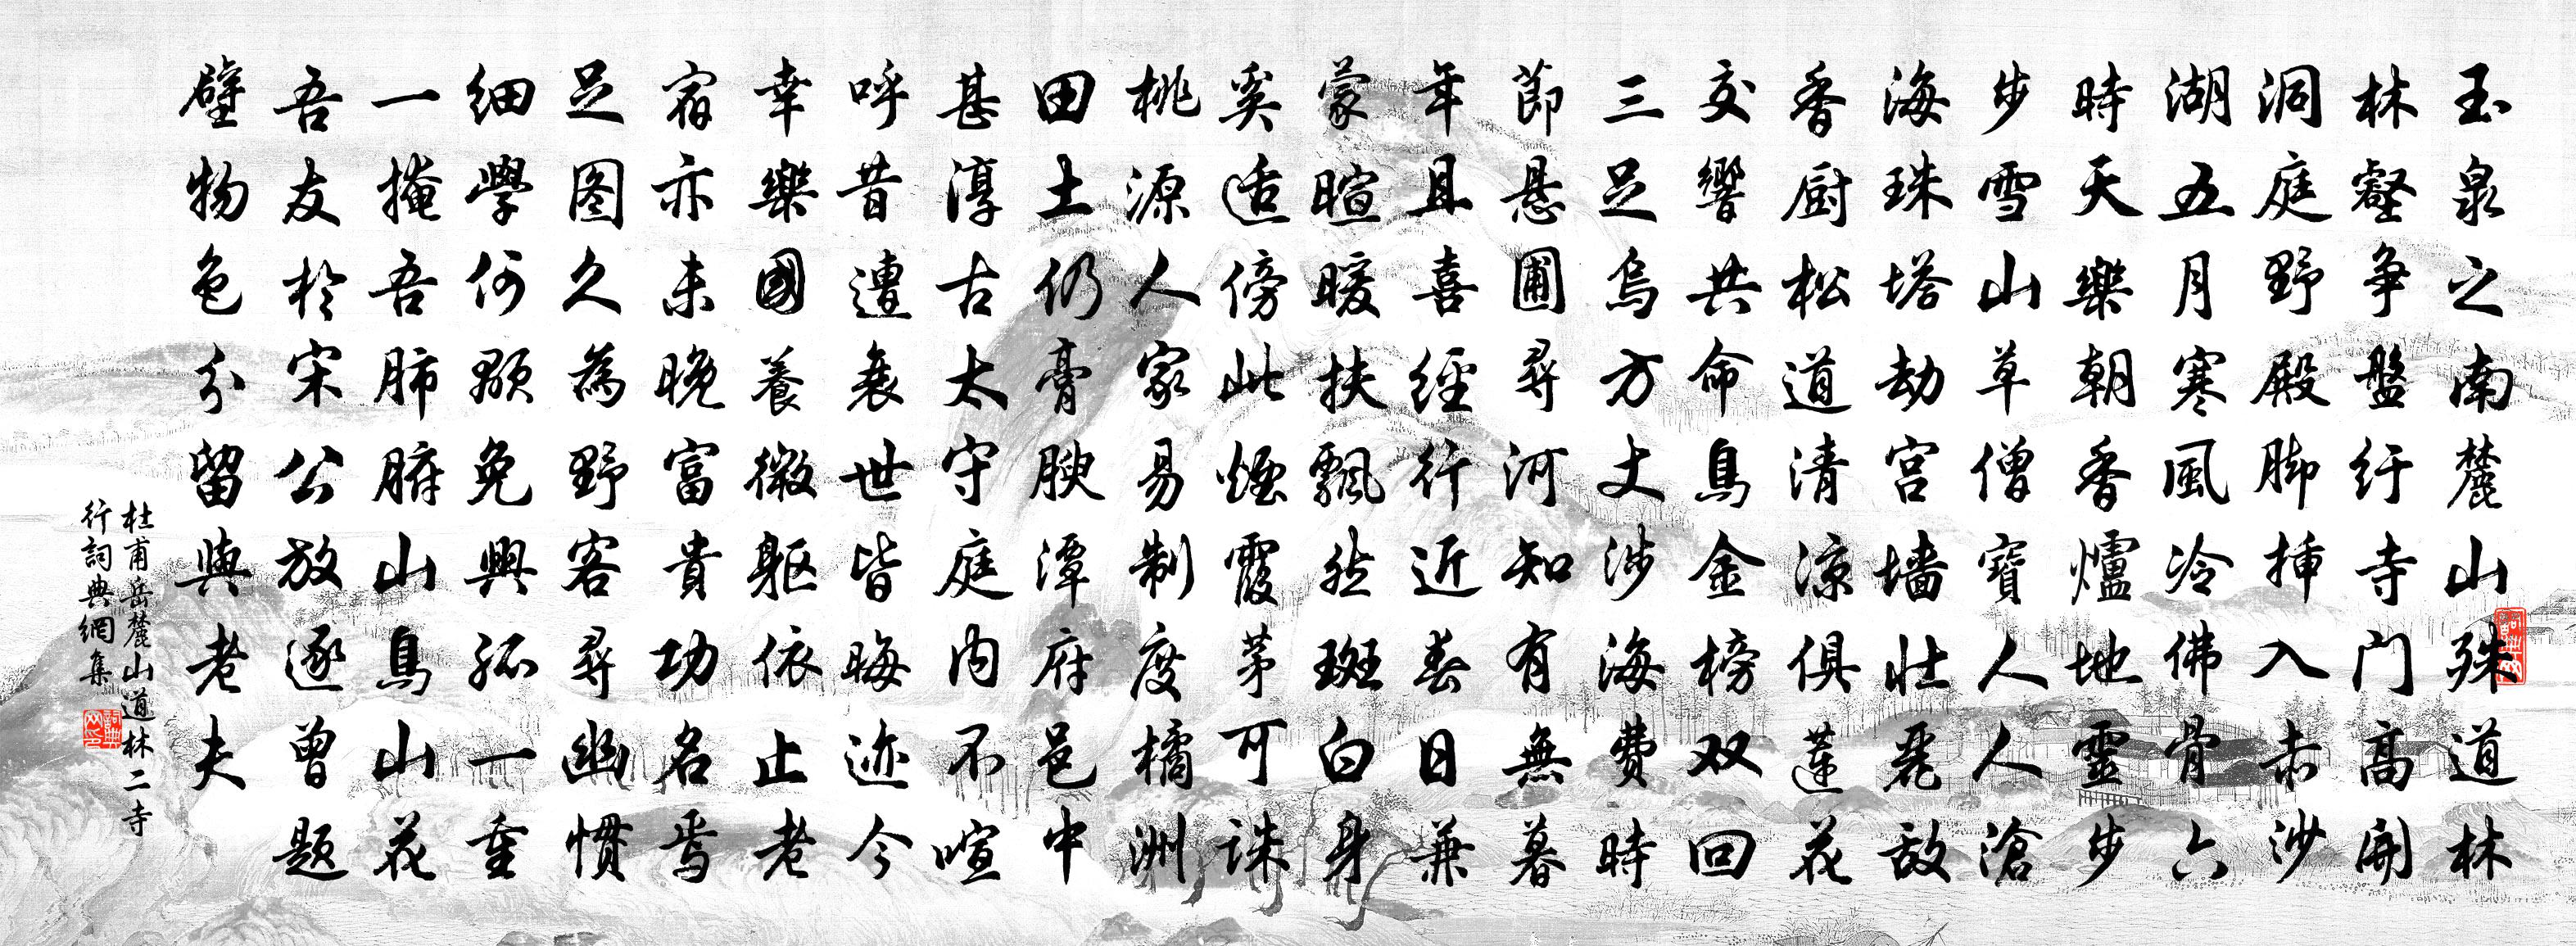 玉泉之南麓山殊道林
林壑爭盤紆寺门高開
洞庭野殿脚插入赤沙
湖五月寒風冷佛骨六
時天樂朝香爐地靈步
步雪山草僧寶人人滄
海珠塔劫宫墙壯麗敌
香厨松道清凉俱蓮花
交響共命鳥金榜双回
三足烏方丈涉海費時
節悬圃尋河知有無暮
年且喜經行近春日兼
蒙暄暖扶飄然斑白身
奚适傍此煙霞茅可誅
桃源人家易制度橘洲
田土仍膏腴潭府邑中
甚淳古太守庭内不喧
呼昔遭衰世皆晦迹今
幸樂國養微躯依止老
宿亦未晚富貴功名焉
足图久為野客尋幽慣
細學何顒免興孤一重
一掩吾肺腑山鳥山花
吾友於宋公放逐曾題
壁物色分留與老夫
杜甫岳麓山道林二寺
行詞典網集